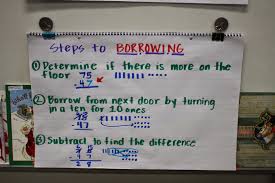 Steps to BORROWING
① Determine if there is more on the
floor 75
- 47
② Borrow from next door by turning
in a ten for 10 ones
- 47
③ Subtract to find the difference
- 47
28